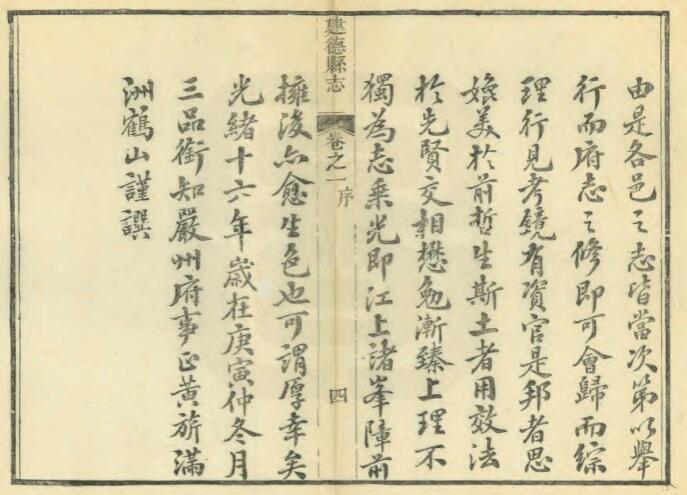 由是各邑之志皆當次第以舉
行而府志之修即可會歸而綜
理行見考鏡有資官是邦者思
媲美於前哲生斯土者用效法
於先賢交相懋勉漸臻上理不
獨為志乗光即江上諸峯障前
建德縣志
卷之一
序
四
擁後亦愈生色也可謂厚幸矣
光緒十六年歲在庚寅仲冬月
三品銜知嚴州府事正黃旂滿
洲鶴山謹譔